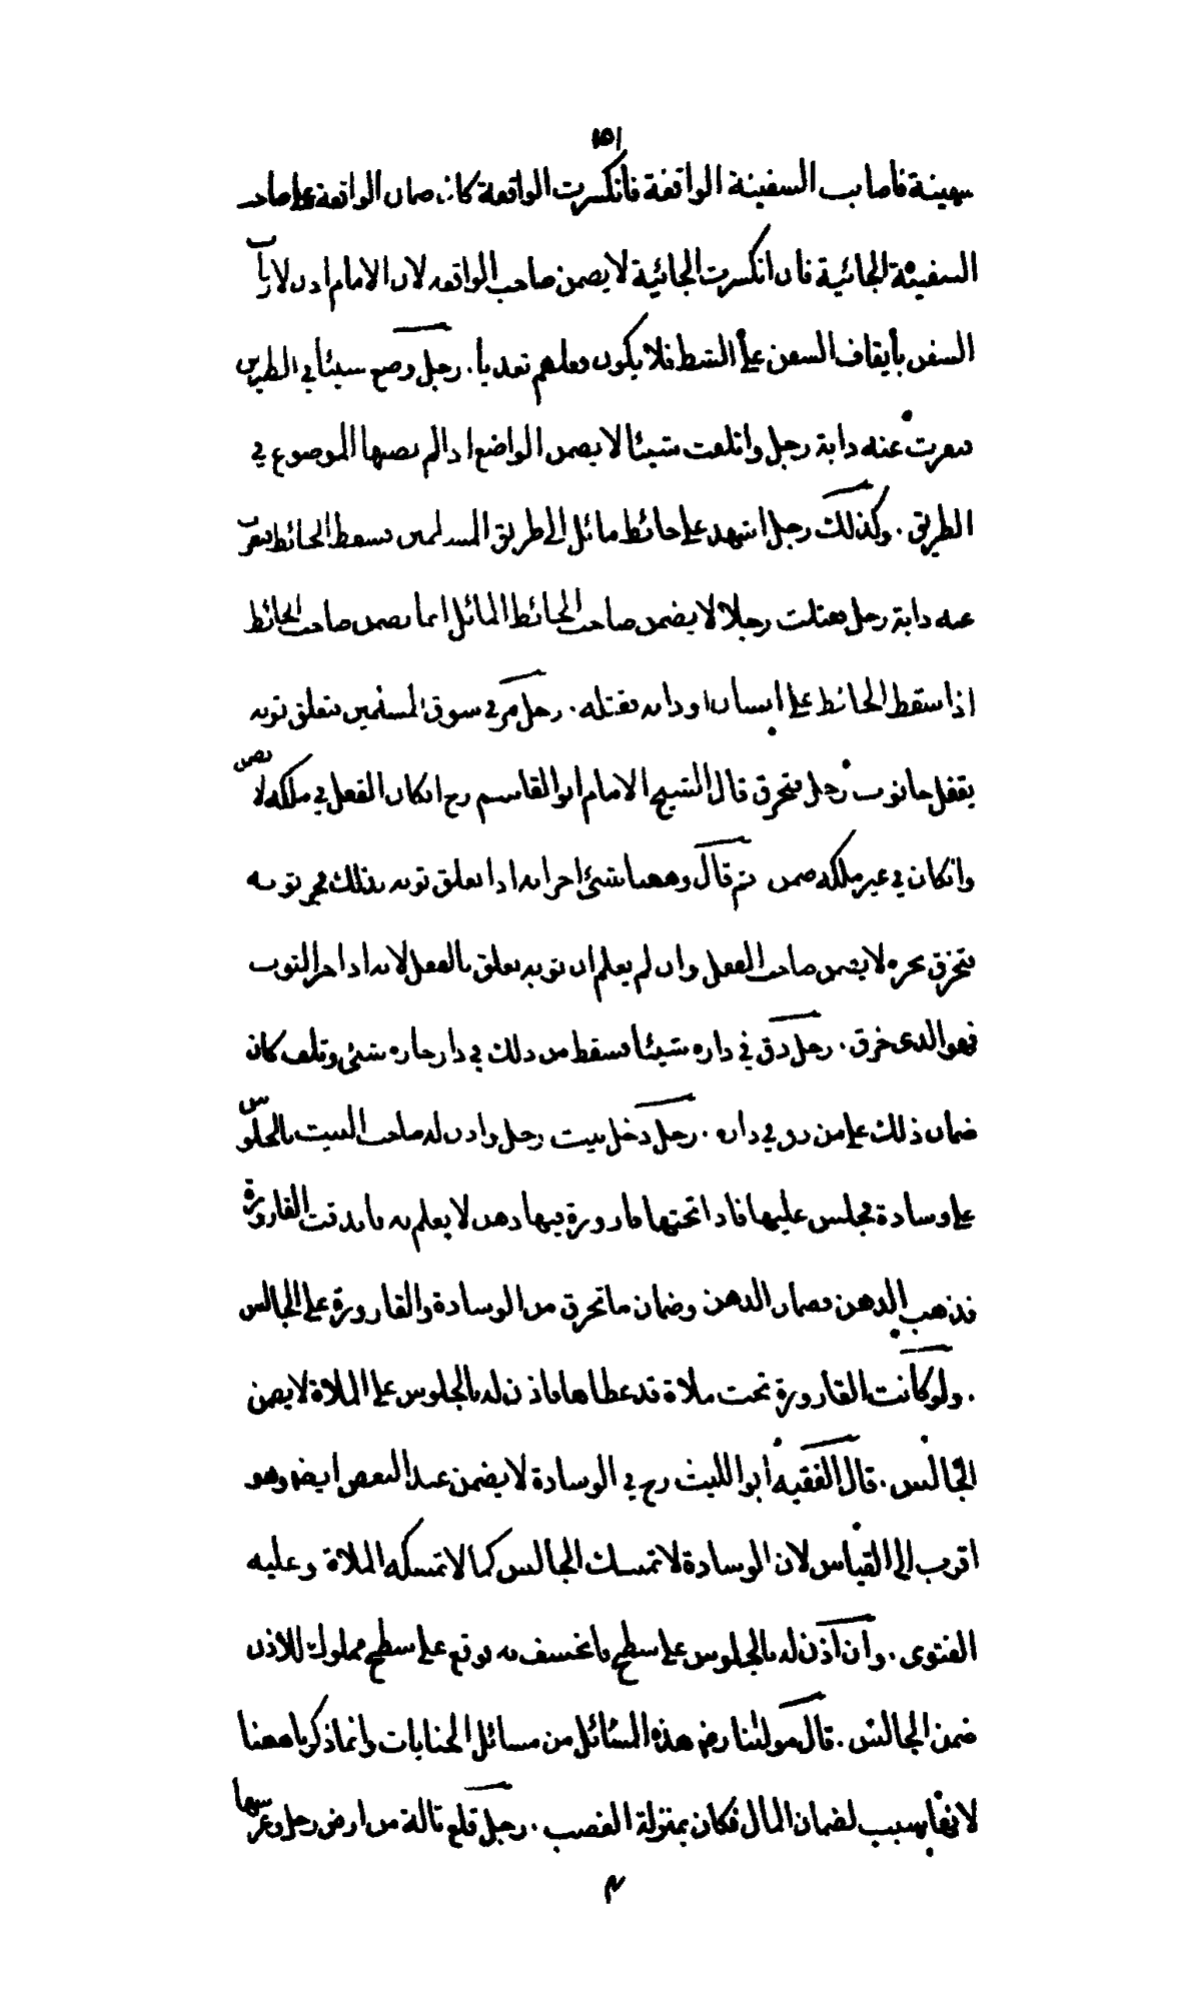 ١٥١
سفينة فاصاب السفينة الواقفة فانكسرت الواقفة كان ضمان الواقفة على صاحب
السفينة الجائية فان انكسرت الجائية لا يضمن صاحب الواقفة لان الامام اذن لارباب
السفن بأيقاف السفن على الشط فلا يكون فعلهم تعديا. رجل وضع شيئا في الطريق
فنفرت عنه دابة رجل واتلفت شيئا لا يضمن الواضع اذا لم يصبها الموضوع في
الطريق. وكذلك رجل اشهد على حائط مائل الى طريق المسلمين فسقط الحائط فنفرت
عنه دابة رجل فقتلت رجلا لا يضمن صاحب الحائط المائل انما يضمن صاحب الحائط
اذا سقط الحائط على انسان او دابة فقتله. رجل مر في سوق المسلمين فتعلق ثوبه
بقفل حانوت رجل فتخرق قال الشيخ الامام ابو القاسم رح ان كان القفل في ملكه لا يضمن
وانكان في غير ملكه ضمن ثم قال وههنا شئ اخر انه اذا تعلق ثوبه بذلك فجر ثوبه
فتخرق بجره لا يضمن صاحب القفل وان لم يعلم ان ثوبه تعلق بالقفل لانه اذا جر الثوب
فهو الذى خرق. رجل دق في داره شيئا فسقط من ذلك في دار جاره شئ وتلف كان
ضمان ذلك على من دق في داره. رجل دخل بيت رجل واذن له صاحب البيت بالجلوس
على وسادة فجلس عليها فاذا تحتها قارورة فيها دهن لا يعلم به فاندقت القارورة
فذهب الدهن فضمان الدهن وضمان ما تخرق من الوسادة والقارورة على الجالس
. ولو كانت القارورة تحت ملاة قد غطاها فاذن له بالجلوس على الملاة لا يضمن
الجالس. قال الفقيه ابو الليث رح في الوسادة لا يضمن عند البعض ايضا وهو
اقرب الى القياس لان الوسادة لا تمسك الجالس كما لا تمسكه الملاة وعليه
الفتوى. وان اذن له بالجلوس على سطح فانخسف به فوقع على سطح مملوك للاذن
ضمن الجالس. قال مولنا رض هذه المسائل من مسائل الجنايات وانما ذكرناها ههنا
لانها سبب لضمان المال فكان بمنزلة الغصب. رجل قلع تالة من ارض رجل وغرسها